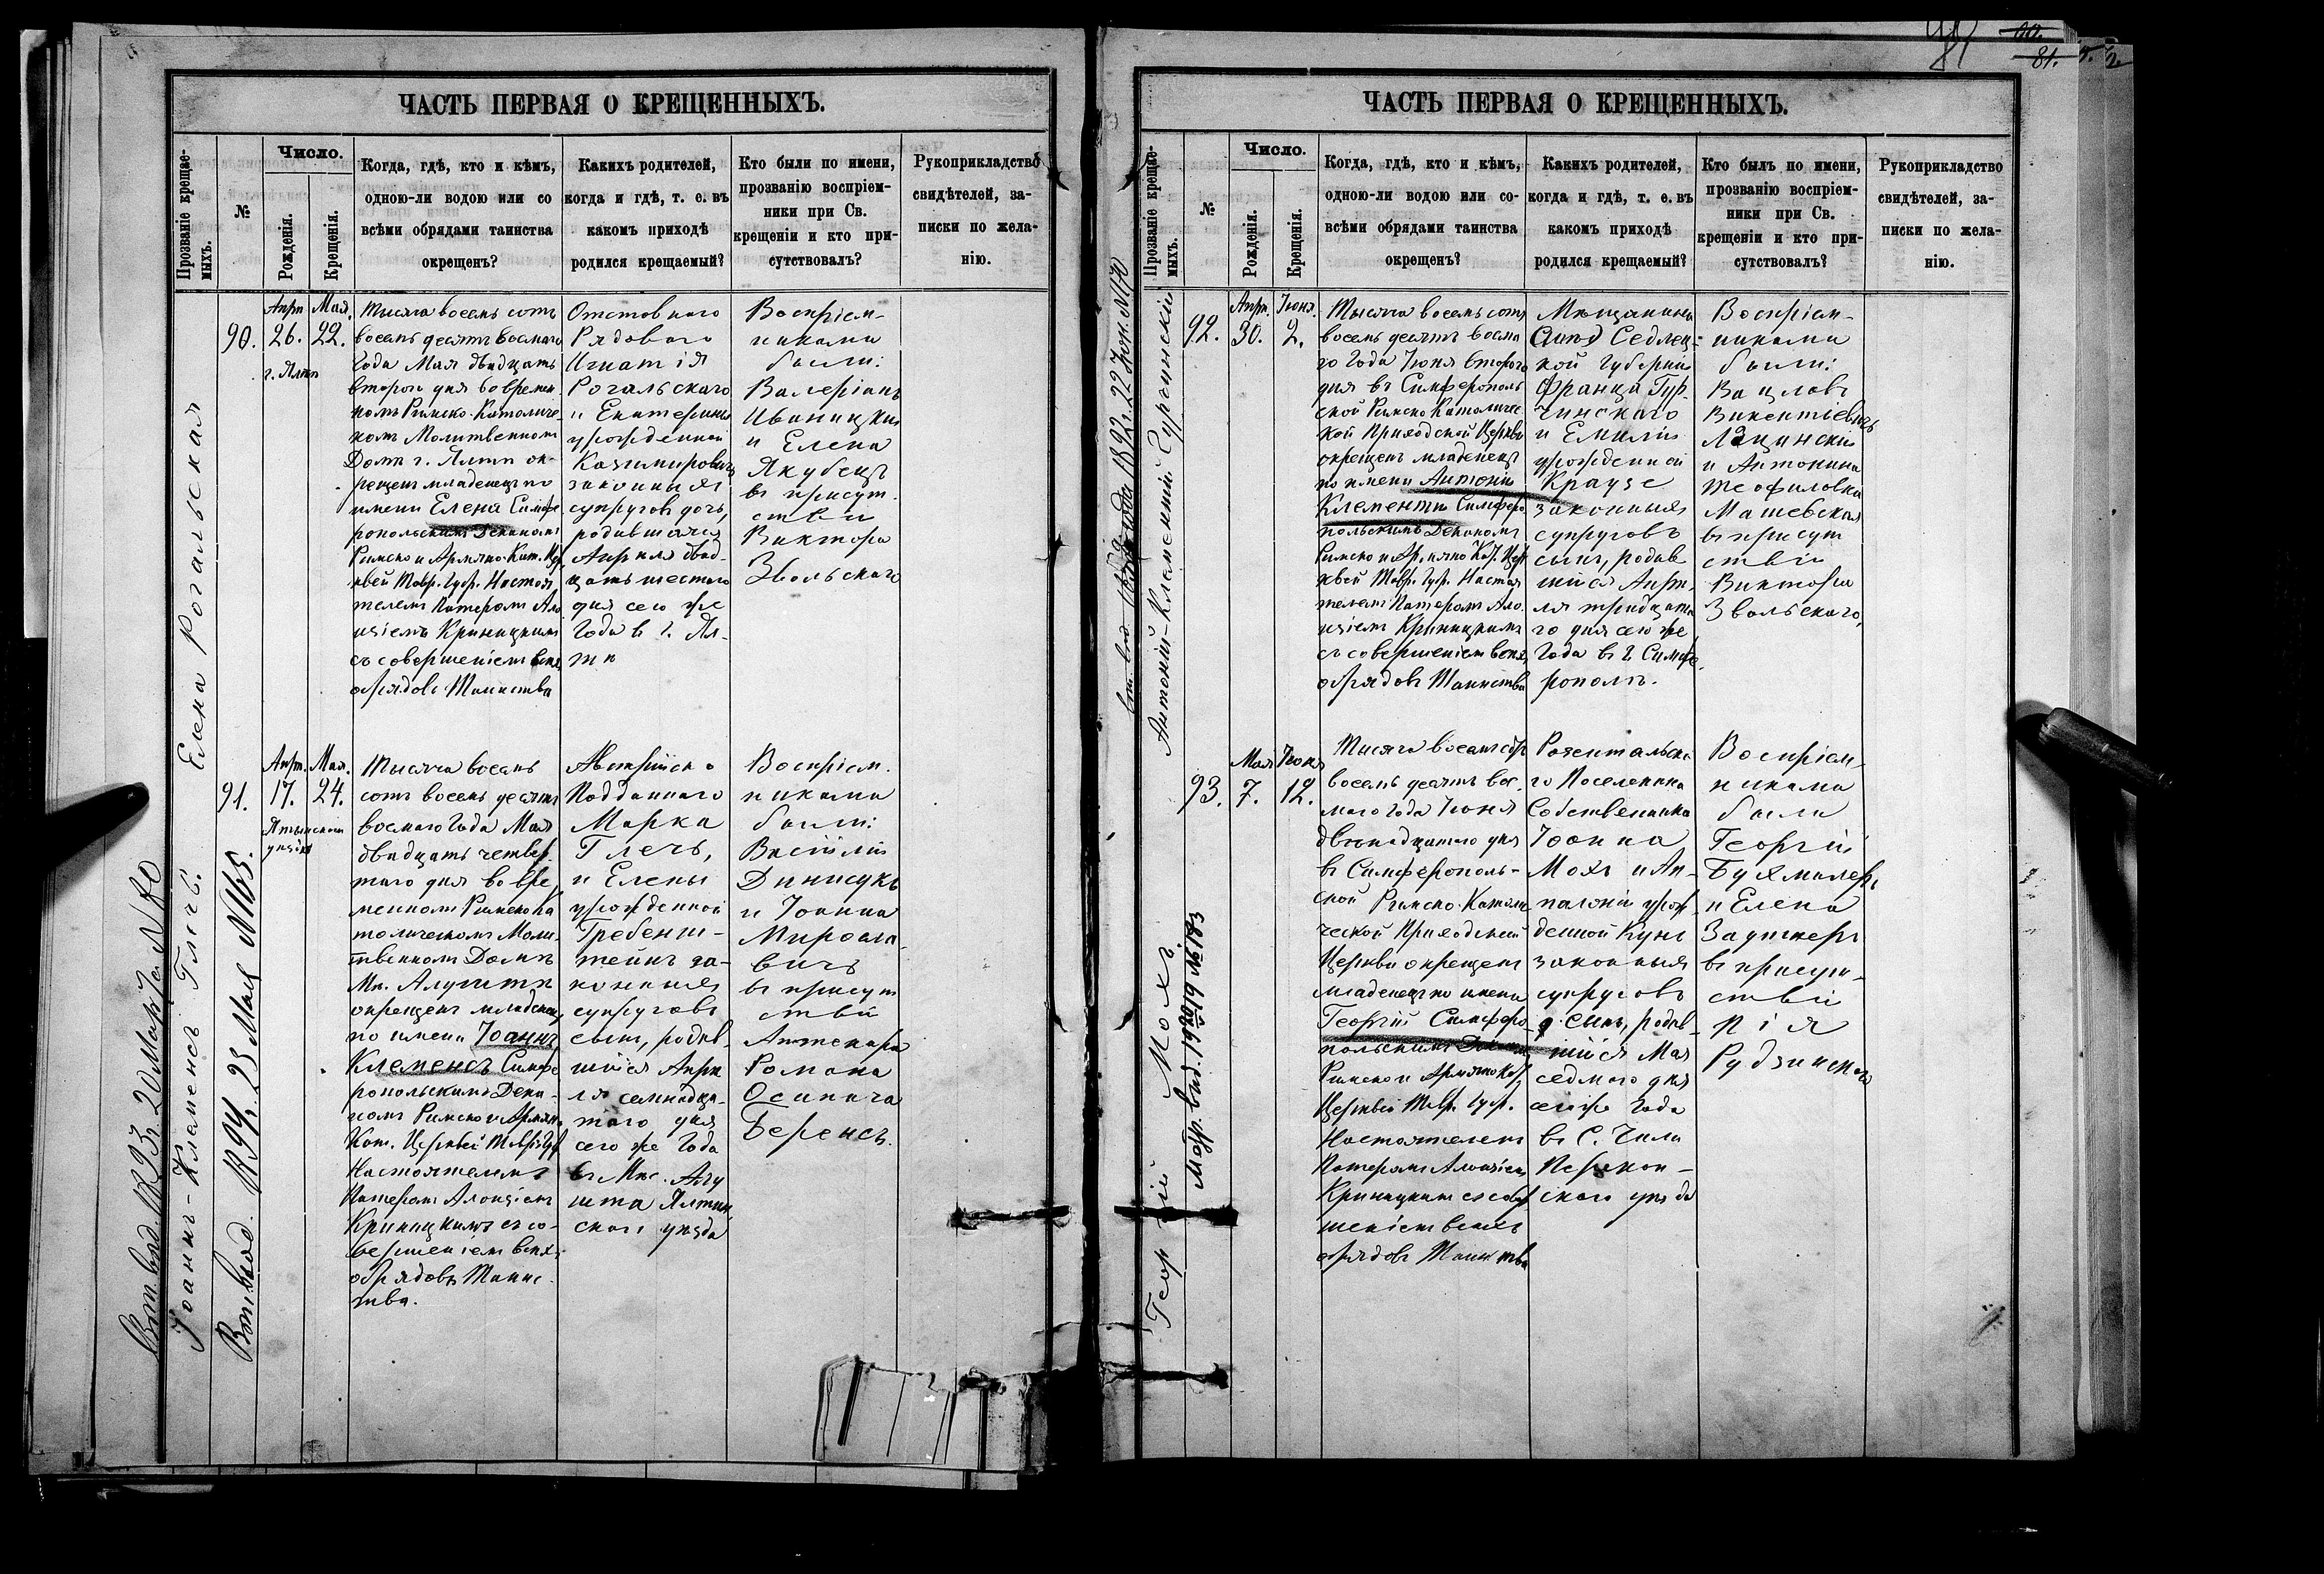 ЧАСТЬ ПЕРВАЯ О КРЕЩЕННЫХЪ.
Прозваніе крещае-
мыхъ.
№
Число.
Рожденія.
Крещенія.
Когда, гдѣ, кто и кѣмъ,
одною-ли водою или со
всѣми обрядами таинства
окрещенъ?
Какихъ родителей,
когда и гдѣ, т. е. въ
какомъ приходѣ
родился крещаемый?
Кто были по имени,
прозванію воспріем-
ники при Св.
крещеніи и кто при-
сутствовалъ?
Рукоприкладство
свидѣтелей, за-
писки по жела-
нію.
Елена Рогальская
90.
Апр.
26.
г. Ялтѣ
Мая.
22.
Тысяча восемь сотъ
восемь десятъ восмаго
Года Мая двадцать
втораго дня во времен
номъ Римско-Католиче-
комъ Молитвенномъ
Домѣ г. Ялтѣ ок-
рещенъ младенецъ по
имени Елена Симфе
ропольскимъ Деканомъ
Римско и Армяно-Кат. Цер
квей Тавр. Губ. Настоя
телемъ Патеромъ Ало
изіемъ Криницкимъ
съ совершеніем всѣхъ
обрядовъ Таинства
Отставного
Рядового
Игнатія
Рогальскаго
и Екатерины
урожденной
Казимировичъ
законныхъ
супруговъ дочь,
родившаяся
Апрѣля двад-
цать шестаго
дня сего же
Года в г. Ял-
тѣ
Воспріем-
никами
были:
Валеріанъ
Иваницкій
и Елена
Якубецъ
въ присут-
ствіи
Виктора
Звольскаго
Іоаннъ-Клеменсъ Глечъ.
Вып. выд. 1893 г. 20 Марта № 80
Вып. выд. 1894 г. 23 Мая № 165.
91.
Апр.
17.
Ялтинскій
уѣздъ
Мая.
24.
Тысяча восемь
сотъ восемь десятъ
восмаго Года Мая
двадцать четвер-
таго дня во вре
менномъ Римско Ка
толическомъ Моли-
твенномъ Домѣ
Мѣ. Алуштѣ
окрещенъ младенецъ
по имени Іоаннъ
Клеменсъ Симфе
ропольскимъ Дека-
номъ Римско и Армян.
Кат. Церквей Тавр. Губ
Настоятелемъ
Патеромъ Алоизіемъ
Криницкимъ съ со-
вершеніем всѣхъ
обрядовъ Таинс-
тва.
Австрійско
Подданнаго
Марка
Глечъ,
и Елены
урожденной
Гребенш-
тейнъ за-
конныхъ
супруговъ
сынъ, родив-
шійся Апрѣ
ля семнадца-
таго дня
сего же Года
въ Мѣс. Алу
шта Ялтин
скаго уѣзда
Воспріем-
никами
были:
Василій
Динисукъ
и Іоанна
Миросла-
вичъ
въ присут
ствіи
Аптекаря
Романа
Осипича
Беренсъ.
81.
ЧАСТЬ ПЕРВАЯ О КРЕЩЕННЫХЪ.
Прозваніе крещае-
мыхъ.
№
Число.
Рожденія.
Крещенія.
Когда, гдѣ, кто и кѣмъ,
одною-ли водою или со-
всѣми обрядами таинства
окрещенъ?
Какихъ родителей,
когда и гдѣ, т. е. въ
какомъ приходѣ
родился крещаемый?
Кто былъ по имени,
прозванію воспріем-
ники при Св.
крещеніи и кто при-
сутствовалъ?
Рукоприкладство
свидѣтелей, за-
писки по жела-
нію.
1892 г. 22 Іюн. № 170
92.
Апр.
30.
Іюня.
2.
Тысяча восемь сотъ
восемь десятъ восма
го Года Іюня второго
дня въ Симферополь
ской Римско Католичес
кой Приходской Церкви
окрещенъ младенецъ
по имени Антоній
Клементій Симферо
польскимъ Деканомъ
Римско и Армяно Кат. Цер
квей Тавр. Губ. Настоя
телемъ Патеромъ Ало-
изіемъ Криницкимъ
съ совершеніем всѣхъ
обрядовъ Таинства
Мѣщанина
Седлец-
кой Губерніи
Франца Гур-
чинскаго
и Емиліи
урожденной
Краузе
законныхъ
супруговъ
сынъ, родив
шійся Апрѣ-
ля тридцата
го дня сего же
Года въ г. Симфе-
рополѣ.
Воспріем-
никами
были:
Вацлавъ
Викентіевичъ
и Антонина
Теофиловна
Машевская
въ присут
ствіи
Виктора
Звольскаго.
Георгій Мохъ.
Метр. выд. 1919 № 183
93.
Мая
7.
Іюня
12.
Тысяча восемь сотъ
восемь десятъ вос-
маго Года Іюня
двѣнадцатаго дня
въ Симферополь-
ской Римско-Католи
ческой Приходской
Церкви окрещенъ
младенецъ по имени
Георгій Симферо-
польскимъ Деканом
Римско и Армяно Кат.
Церквей Тавр. Губ.
Настоятелемъ
Патеромъ Алоизіем
Криницкимъ съ совер
шеніем всѣхъ
обрядовъ Таинства
Розентальска
го Поселянина
Собственника
Іоанна
Мохъ и Ап-
палоніи урож
денной Кунъ
законныхъ
супруговъ
сынъ, родив-
шійся Мая
седмого дня
сего же Года
въ С. Чила
Перекоп-
скаго уѣзда
Воспріем-
никами
были
Георгій
Бухмилеръ
и Елена
Задинеръ
въ присут-
ствіи
Пія
Рудзинскаго